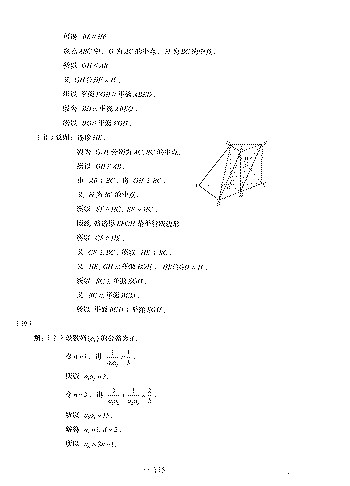 可得 BE∥HF
在△ABC中，G为AC的中点，H为BC的中点，
所以 GH∥AB
又 GH∩HF=H，
所以 平面FGH∥平面ABED，
因为 BD⊂平面ABED，
所以 BD∥平面FGH.
证明：连接HE.
因为 G,H分别为AC,BC的中点，
所以 GH∥AB，
由 AB⊥BC，得 GH⊥BC，
又 H为BC的中点，
所以 EF∥HC，EF=HC，
因此 四边形EFCH是平行四边形
所以 CF∥HE，
又 CF⊥BC，所以 HE⊥BC，
又 HE,GH⊂平面EGH，HE∩GH=H，
所以 BC⊥平面EGH，
又 BC⊂平面BCD，
所以 平面BCD⊥平面EGH.
(19)
解：设数列{aₙ}的公差为d，
令n=1，得 1/(a₁a₂)=1/3，
所以 a₁a₂=3.
令n=2，得 1/(a₁a₂)+1/(a₂a₃)=2/5，
所以 a₂a₃=15.
解得 a₁=1, d=2，
所以 aₙ=2n-1.